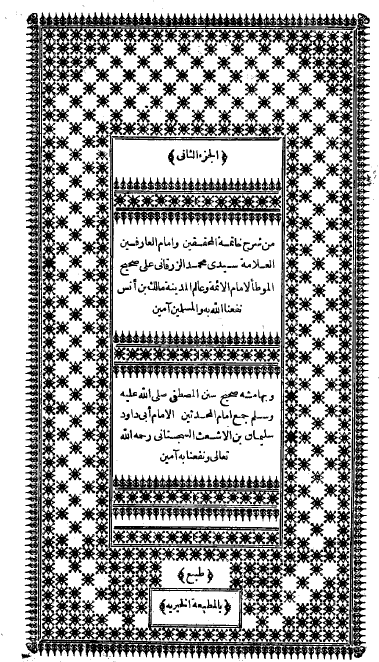 ﴿الجزء الثانى﴾
من شرح خاتمة المحققين وامام العارفين
العلامة سيدى محمد الزرقانى على صحيح
الموطأ لامام الائمة وعالم المدينة مالك بن أنس
نفعنا الله به والمسلمين آمين
وبهامشه صحيح سنن المصطفى صلى الله عليه
وسلم جمع امام المحدثين الامام أبى داود
سليمان بن الاشعث السجستانى رحمه الله
تعالى ونفعنا به آمين
﴿طبع﴾
﴿بالمطبعة الخيرية﴾